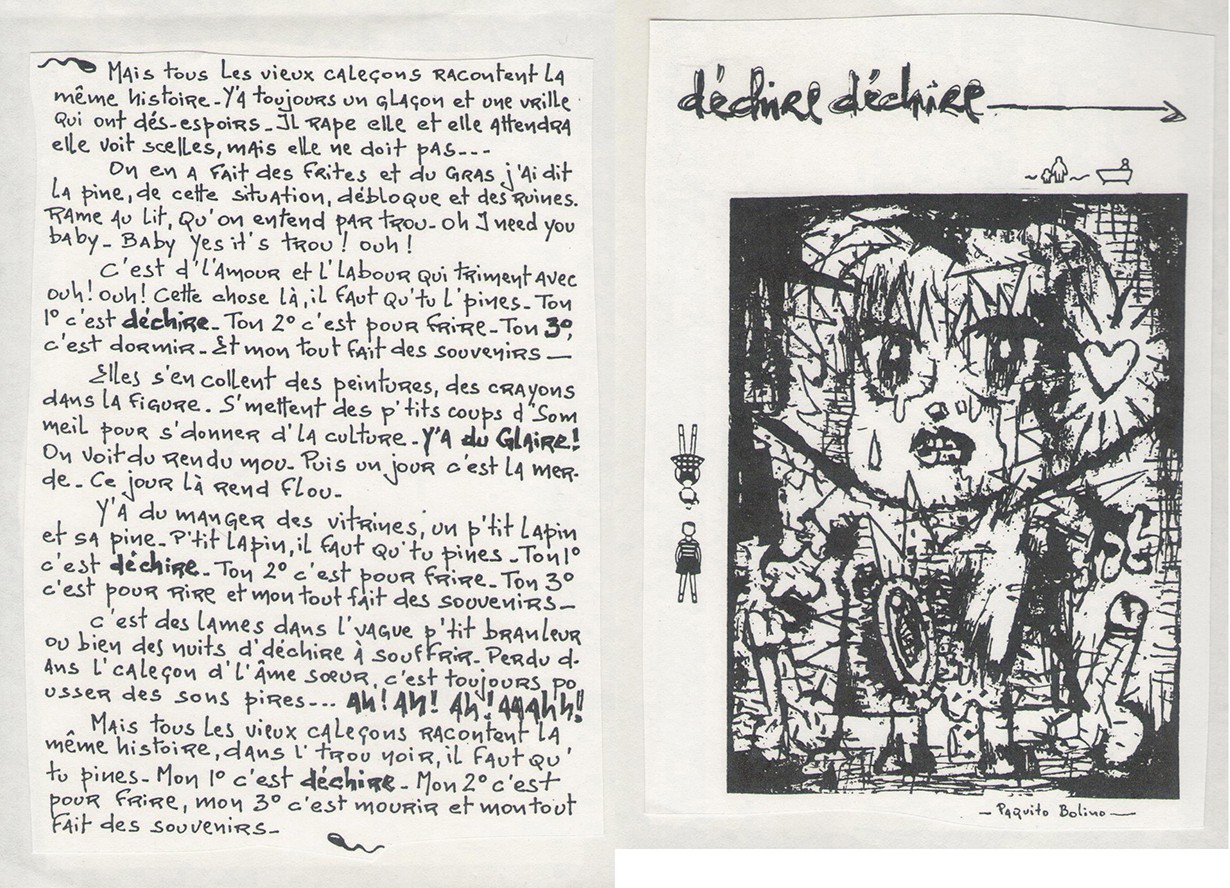 Mais tous les vieux caleçons racontent la
même histoire_Y'a toujours un glaçon et une vrille
qui ont dés-espoirs_Il rape elle et elle attendra
elle voit scelles, mais elle ne doit pas---
On en a fait des frites et du gras j'ai dit
la pine, de cette situation, débloque et des ruines.
Rame au lit, qu'on entend par trou_Oh I need you
baby_Baby yes it's trou! ouh!
C'est d'l'amour et l'labour qui triment avec
ouh! ouh! Cette chose là, il faut qu'tu l'pines_Ton
1° c'est déchire_Ton 2° c'est pour frire_Ton 3°,
c'est dormir_Et mon tout fait des souvenirs_
Elles s'en collent des peintures, des crayons
dans la figure. S'mettent des p'tits coups d'som
meil pour s'donner d'la culture_Y'a du Glaire!
On voit du rendu mou_Puis un jour c'est la mer-
de_Ce jour là rend flou_
Y'a du manger des vitrines, un p'tit lapin
et sa pine_P'tit lapin, il faut qu'tu pines_Ton 1°
c'est déchire_Ton 2° c'est pour frire_Ton 3°
c'est pour rire et mon tout fait des souvenirs_
c'est des lames dans l'vague p'tit branleur
ou bien des nuits d'déchire à souffrir_Perdu d-
ans l'caleçon d'l'âme sœur, c'est toujours po
usser des sons pires... Ah! Ah! Ah! Aaahh!
Mais tous les vieux caleçons racontent la
même histoire, dans l'trou noir, il faut qu'
tu pines_Mon 1° c'est déchire_Mon 2° c'est
pour frire, mon 3° c'est mourir et mon tout
fait des souvenirs_
déchire déchire
_Paquito Bolino_